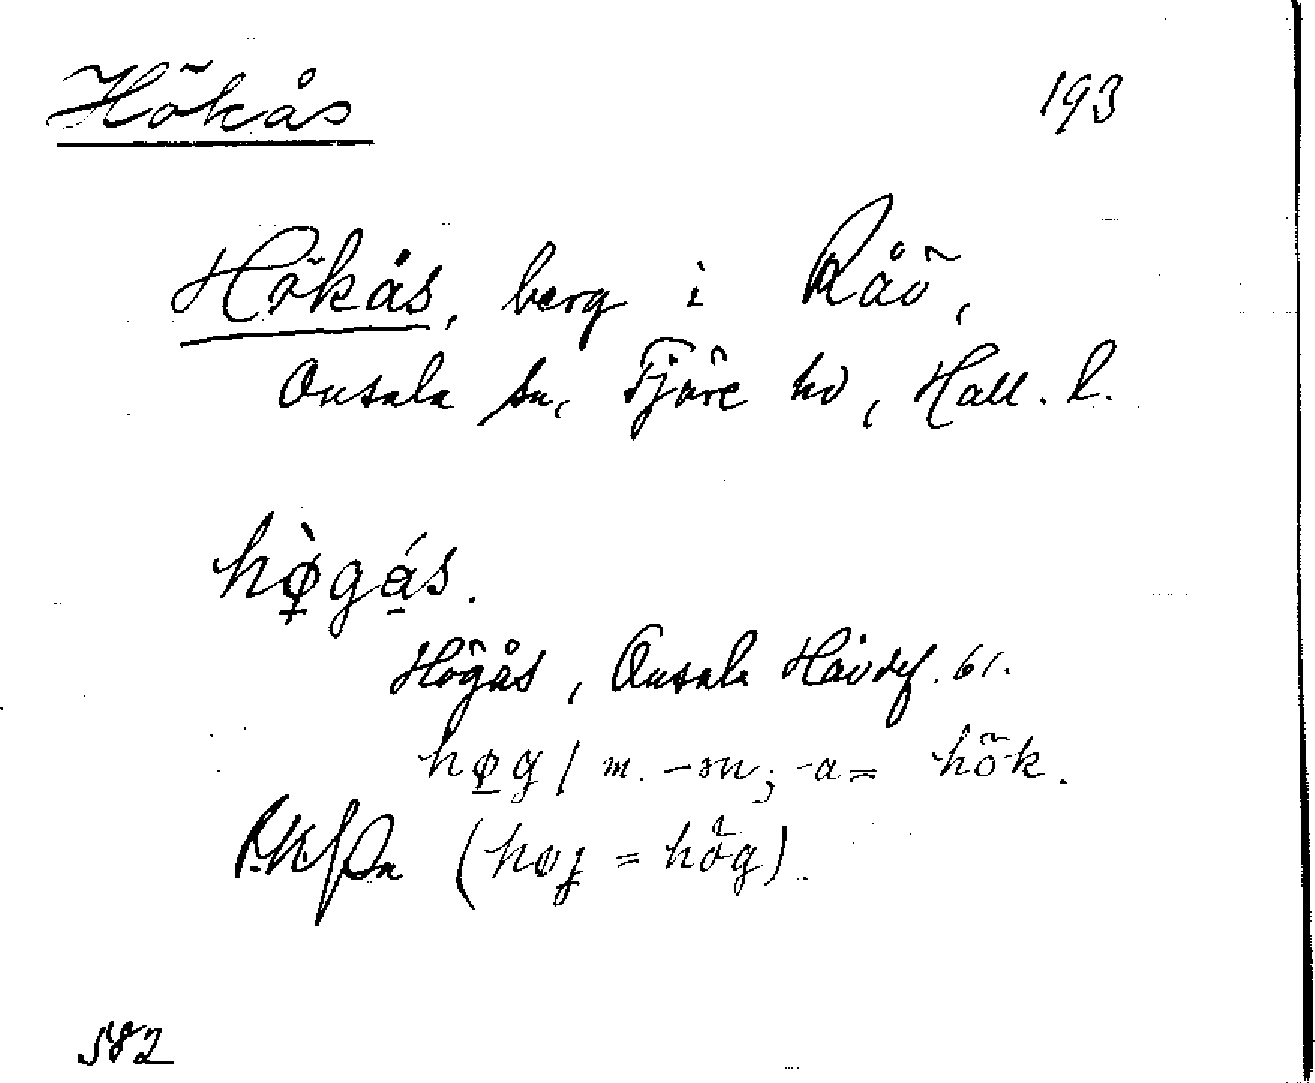 Hökås 193
Hökås, berg i Råö,
Onsala sn, Fjäre hd, Hall. l.
hø̱̀gá̱s.
Högås, Onsala Hävdef. 61.
hø̱g / m. -sn; -a = hök.
(høj = hög).
582